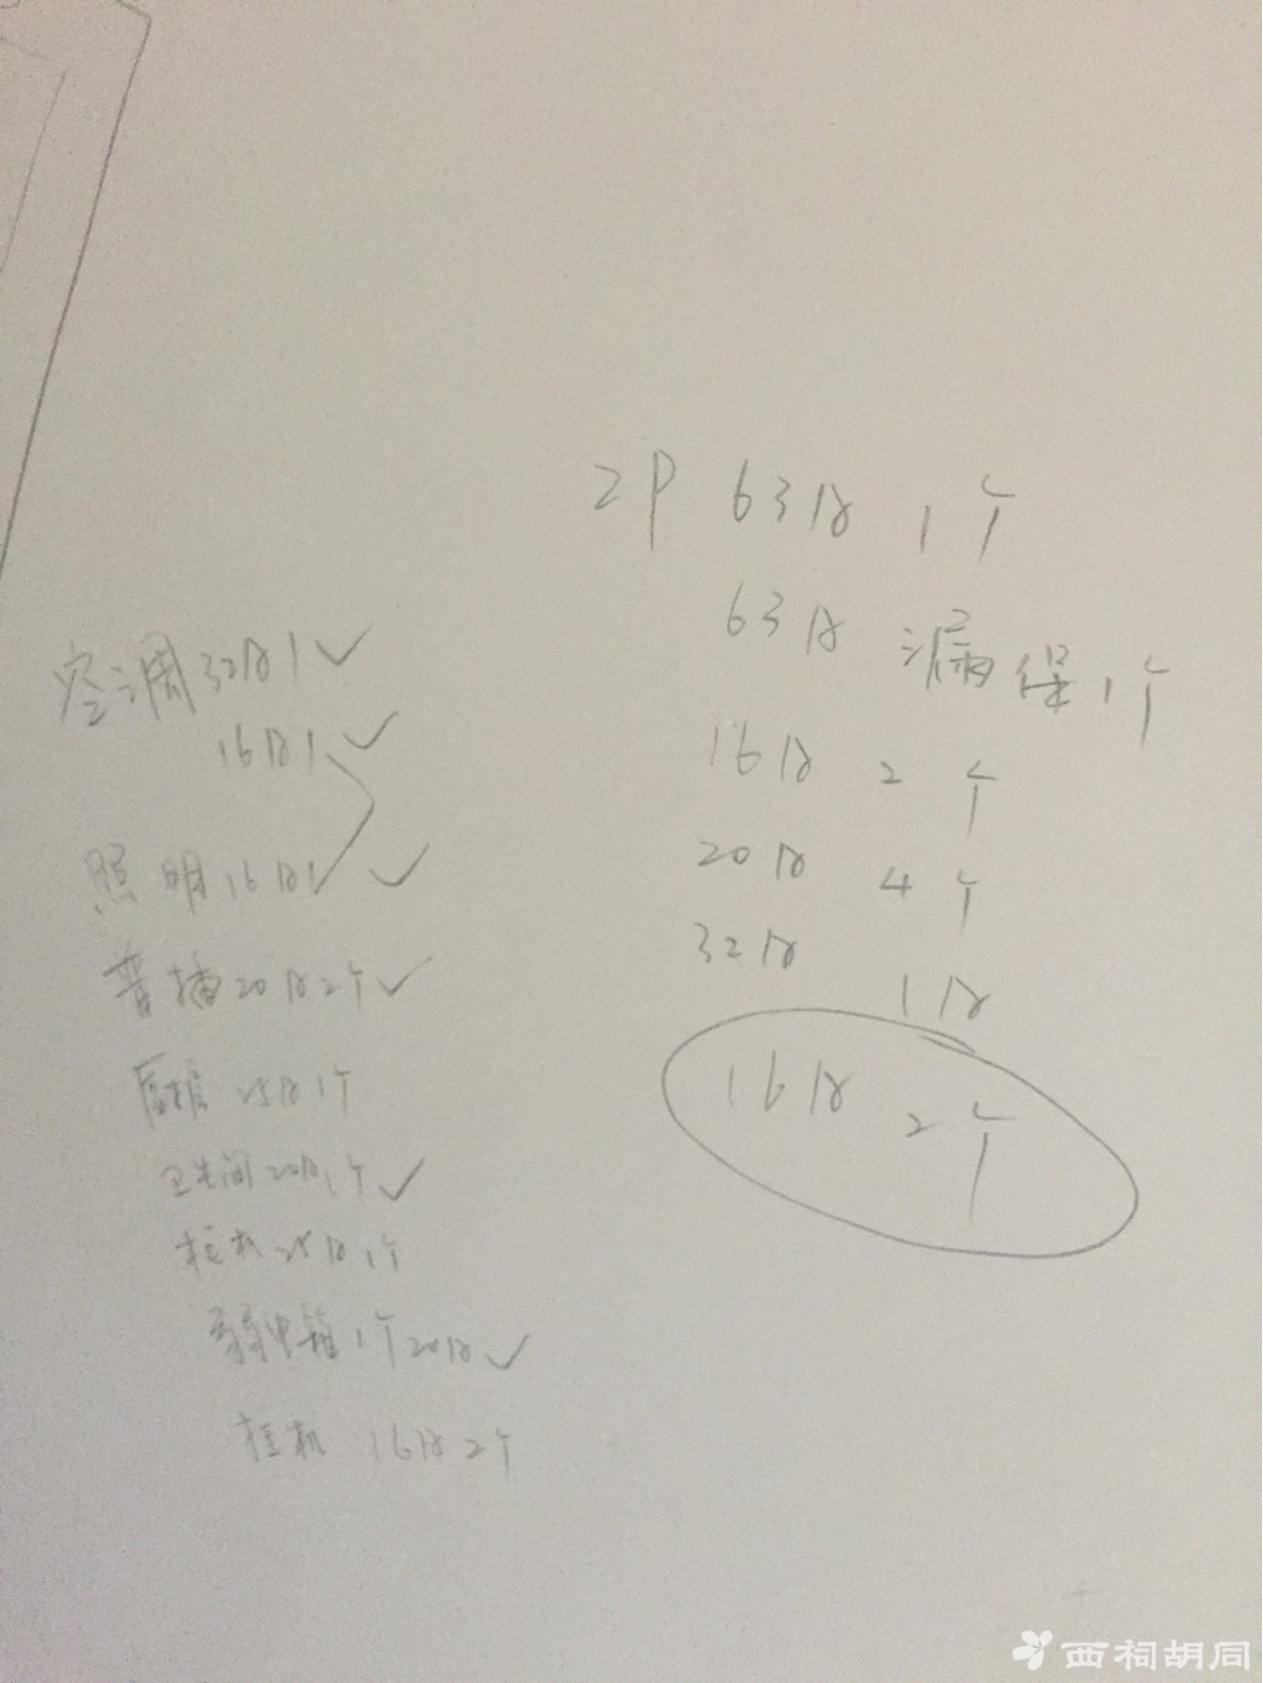 空调32A1✓
16A1✓
照明16A1✓
普插20A2个✓
厨房25A1个
卫生间20A1个✓
柜机25A1个
弱电箱1个20A✓
挂机 16A2个
2P 63A 1个
63A 漏保1个
16A 2个
20A 4个
32A 1A
16A 2个
西祠胡同